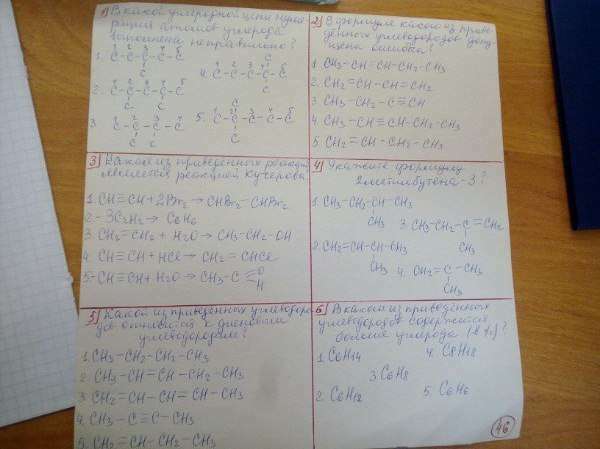 1) В какой углеродной цепи нуме-
рация атомов углерода
выполнена неправильно?
1. C-C-C-C-C
4. C-C-C-C-C
2. C-C-C-C-C
3. C-C-C-C
5. C-C-C-C-C
2) В формуле какого из приве-
дённых углеводородов допу-
щена ошибка?
1. CH3-CH=CH-CH2-CH3
2. CH2=CH-CH=CH2
3. CH3-CH2-C≡CH
4. CH3-CH≡CH-CH2-CH3
5. CH2=CH-CH2-CH3
3) Какая из приведенных реакций
является реакцией Кучерова
1. CH≡CH+2Br2→CHBr2-CHBr2
2.-3C2H2→C6H6
3 CH2=CH2+H2O→CH3-CH2-OH
4 CH≡CH+HCl→CH2=CHCl
5.-CH≡CH+H2O→CH3-C
O
H
4) Укажите формулу
2метилбутена-3?
1. CH3-CH2-CH-CH3
CH3
3. CH3-CH2-C=CH2
CH3
2. CH2=CH-CH-CH3
CH3
4. CH2=C-CH3
CH3
5) Какой из приведенных углеводоро-
дов относится к диеновым
углеводородам?
1. CH3-CH2-CH2-CH3
2. CH3-CH=CH-CH2-CH3
3 CH2=CH-CH=CH-CH3
4. CH3-C≡C-CH3
5. CH2=CH-CH2-CH3
6) В каком из приведённых
углеводородов содержится
больше углерода (в %)?
1. C6H14
4. C8H18
3. C6H8
2. C6H12
5. C6H6
46